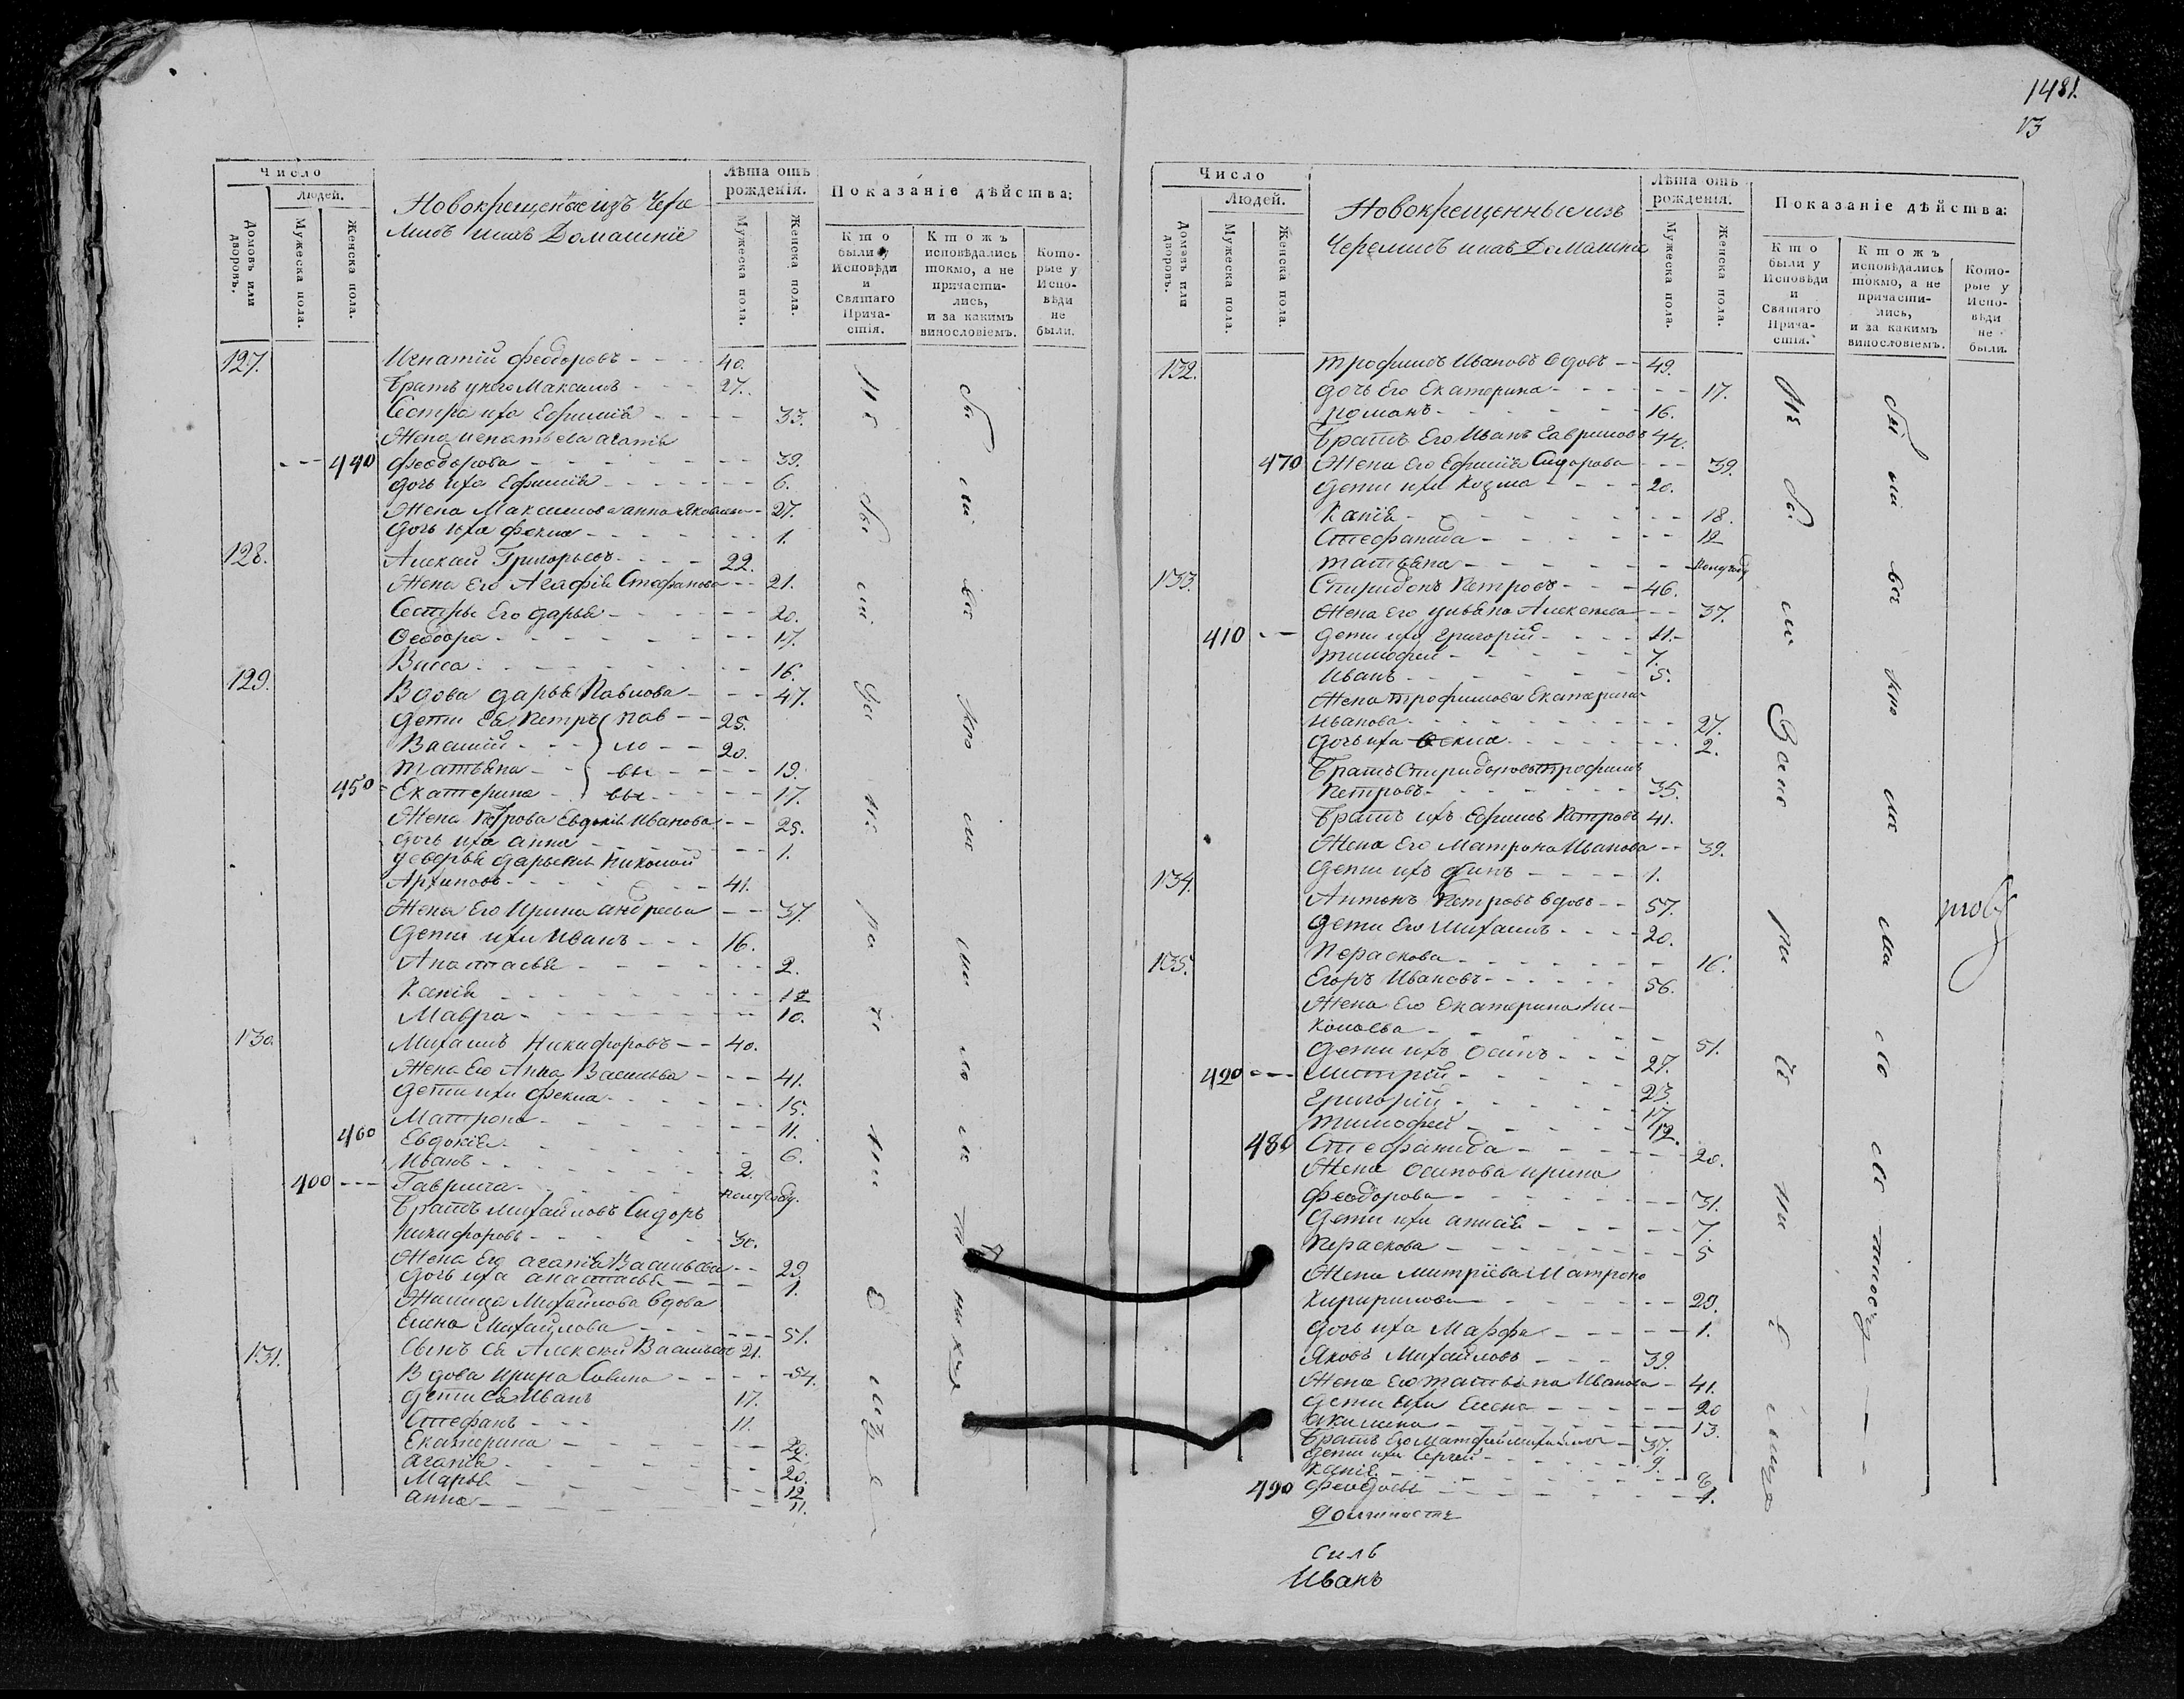 1481.
13
Число
Людей.
Домовъ или дворовъ.
Мужеска пола.
Женска пола.
Новокрещеные изъ Чере
мисъ и ихъ Домашніе
Лѣта отъ рожденія.
Мужеска пола.
Женска пола.
Показаніе дѣйства:
Кто были у Исповѣди и Святаго Причастія.
Ктожъ исповѣдались токмо, а не причастились, и за какимъ винословіемъ.
Которые у Исповѣди не были.
127. Игнатій Феодоровъ 40.
Братъ у него Максимъ 27.
Сестра ихъ Ефимія 33.
Жена Игнатьева Агафія
440 Феодорова 39.
дочь ихъ Ефимія 6.
Жена Максимова Анна Яковлева 27.
дочь ихъ Фекла 1.
128. Алексѣй Григорьевъ 22.
Жена Его Агафія Стефанова 21.
Сестры Его Дарья 20.
Феодора 17.
Васса 16.
129. Вдова Дарья Павлова 47.
дети Ея Петръ Пав 25.
Василій ло 20.
Татьяна вы 19.
450 Екатерина вы 17.
Жена Петрова Евдокія Иванова 25.
дочь ихъ Анна 1.
деверья Дарьины Николай
Архиповъ 41.
Жена Его Ирина Андреева 37.
дети ихъ Иванъ 16.
Анастасья 2.
Ксенія 12
Мавра 10.
130. Михаилъ Никифоровъ 40.
Жена Его Анна Васильева 41.
дети ихъ Фекла 15.
Матрона 11.
460 Евдокія 6.
Иванъ 2.
400 Гаврила полугоду.
Братъ Михайловъ Сидоръ
Никифоровъ 30.
Жена Его Агафія Васильева 29
дочь ихъ Анастасья 1.
Жилица Михайлова вдова
Елена Михайлова 51.
Сынъ Ея Алексѣй Васильевъ 21.
131. Вдова Ирина Савина 54.
дети Ея Иванъ 17.
Стефанъ 11.
Екатерина 22.
Агафія 20.
Марья 12
Анна 11.
Число
Людей.
Домовъ или дворовъ.
Мужеска пола.
Женска пола.
Новокрещенные изъ
Черемисъ и ихъ Домашніе
Лѣта отъ рожденія.
Мужеска пола.
Женска пола.
Показаніе дѣйства:
Кто были у Исповѣди и Святаго Причастія.
Ктожъ исповѣдались токмо, а не причастились, и за какимъ винословіемъ.
Которые у Исповѣди не были.
132. Трофимъ Ивановъ вдовъ 49.
дочь Его Екатерина 17.
Романъ 16.
Братъ Его Иванъ Гавриловъ 44.
470 Жена Его Ефимія Сидорова 39.
дети ихъ Козма 20.
Ксенія 18.
Стефанида 12
Татьяна полугоду
133. Спиридонъ Петровъ 46.
Жена Его Ульяна Алексеева 37.
410 дети ихъ Григорій 11.
Тимофей 7.
Иванъ 5.
Жена Трофимова Екатерина
Иванова 27.
дочь ихъ Фекла 2.
Братъ Спиридоновъ Трофимъ
Петровъ 35.
Братъ ихъ Ефимъ Петровъ 41.
Жена Его Матрона Иванова 39.
дети ихъ 1.
134. Антонъ Петровъ вдовъ 57.
дети Его Михаилъ 20.
Пераскова 16.
135. Егоръ Ивановъ 56.
Жена Его Екатерина Ни-
колаева 51.
дети ихъ Осипъ 27.
420 Митрій 23.
Григорій 17
Тимофей 12.
480 Стефанида 20.
Жена Осипова Ирина
Феодорова 31.
дети ихъ Анисія 7.
Пераскова 5
Жена Митріева Матрона
29.
дочь ихъ Марфа 1.
Яковъ Михайловъ 39.
Жена Его Татьяна Иванова 41.
дети ихъ Елена 20
Акилина 13.
Братъ Его Матфей Михайловъ 37.
дети ихъ Сергей 9.
Ксенія 6
490 Феодосья 1.
Иванъ